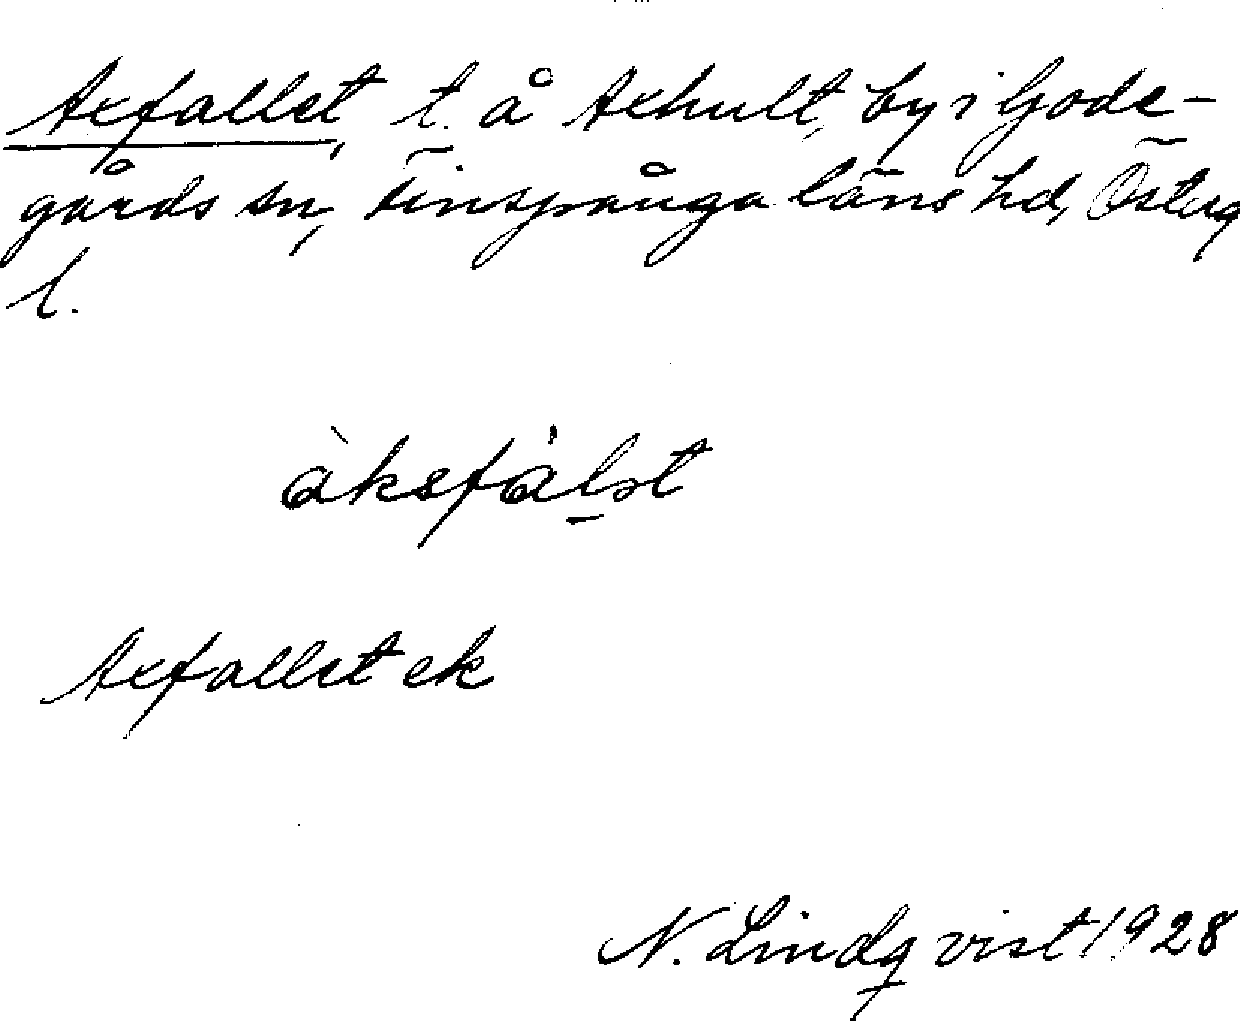 Axfallet, t. å Axhult, by i Gode-
gårds sn, Finspånga läns hd, Österg
l.
àksfàlət
Axfallet ek
N. Lindqvist 1928